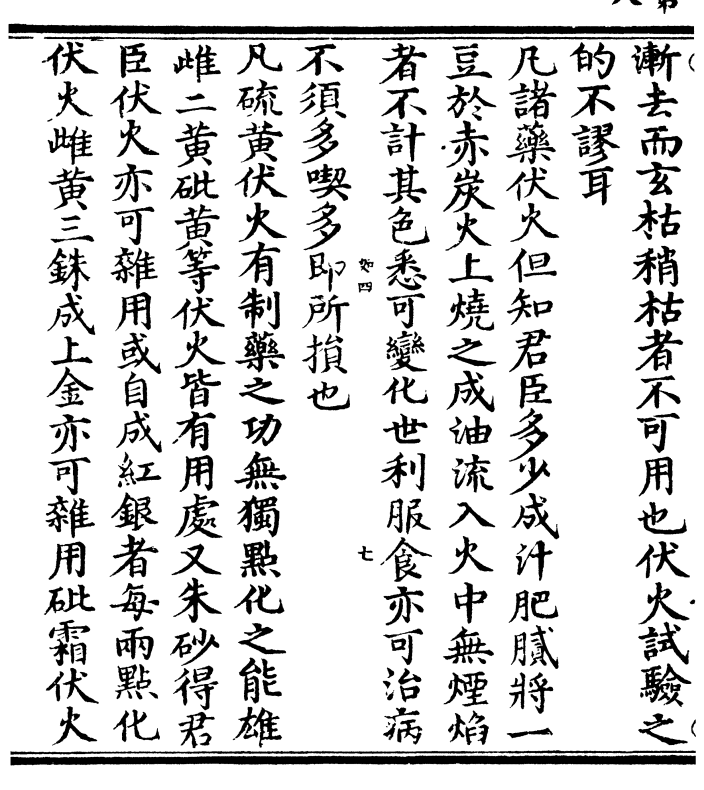 漸去而玄枯稍枯者不可用也伏火試驗之
的不謬耳
凡諸藥伏火但知君臣多少成汁肥膩將一
豆於赤炭火上燒之成油流入火中無煙焰
者不計其色悉可變化世利服食亦可治病
如四
七
不須多喫多即所損也
凡硫黃伏火有制藥之功無獨點化之能雄
雌二黃砒黃等伏火皆有用處又朱砂得君
臣伏火亦可雜用或自成紅銀者每兩點化
伏火雌黃三銖成上金亦可雜用砒霜伏火